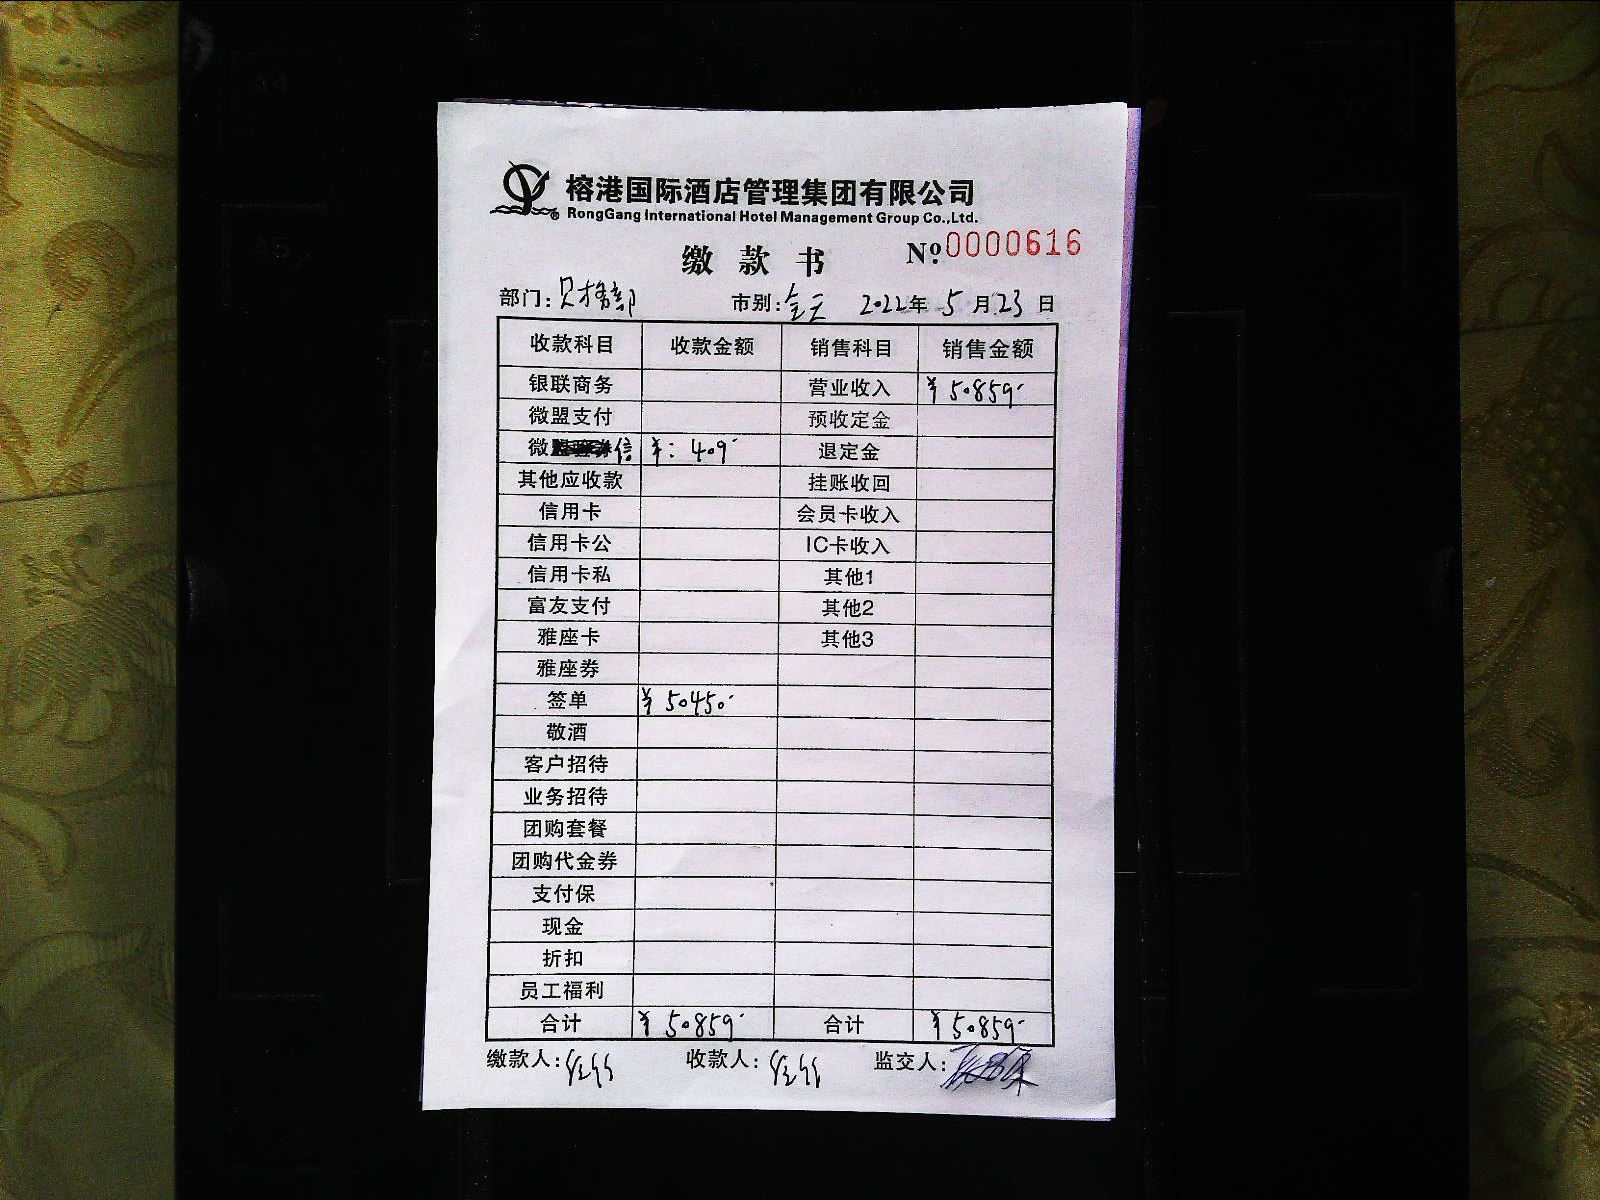 榕港国际酒店管理集团有限公司
RongGang International Hotel Management Group Co.,Ltd.
缴款书 №0000616
部门: 市别:全天 2022年5月23日
收款科目 收款金额 销售科目 销售金额
银联商务 营业收入 ¥50859-
微盟支付 预收定金
微信 ¥:409- 退定金
其他应收款 挂账收回
信用卡 会员卡收入
信用卡公 IC卡收入
信用卡私 其他1
富友支付 其他2
雅座卡 其他3
雅座券
签单 ¥50450-
敬酒
客户招待
业务招待
团购套餐
团购代金券
支付保
现金
折扣
员工福利
合计 ¥50859- 合计 ¥50859-
缴款人: 收款人: 监交人: